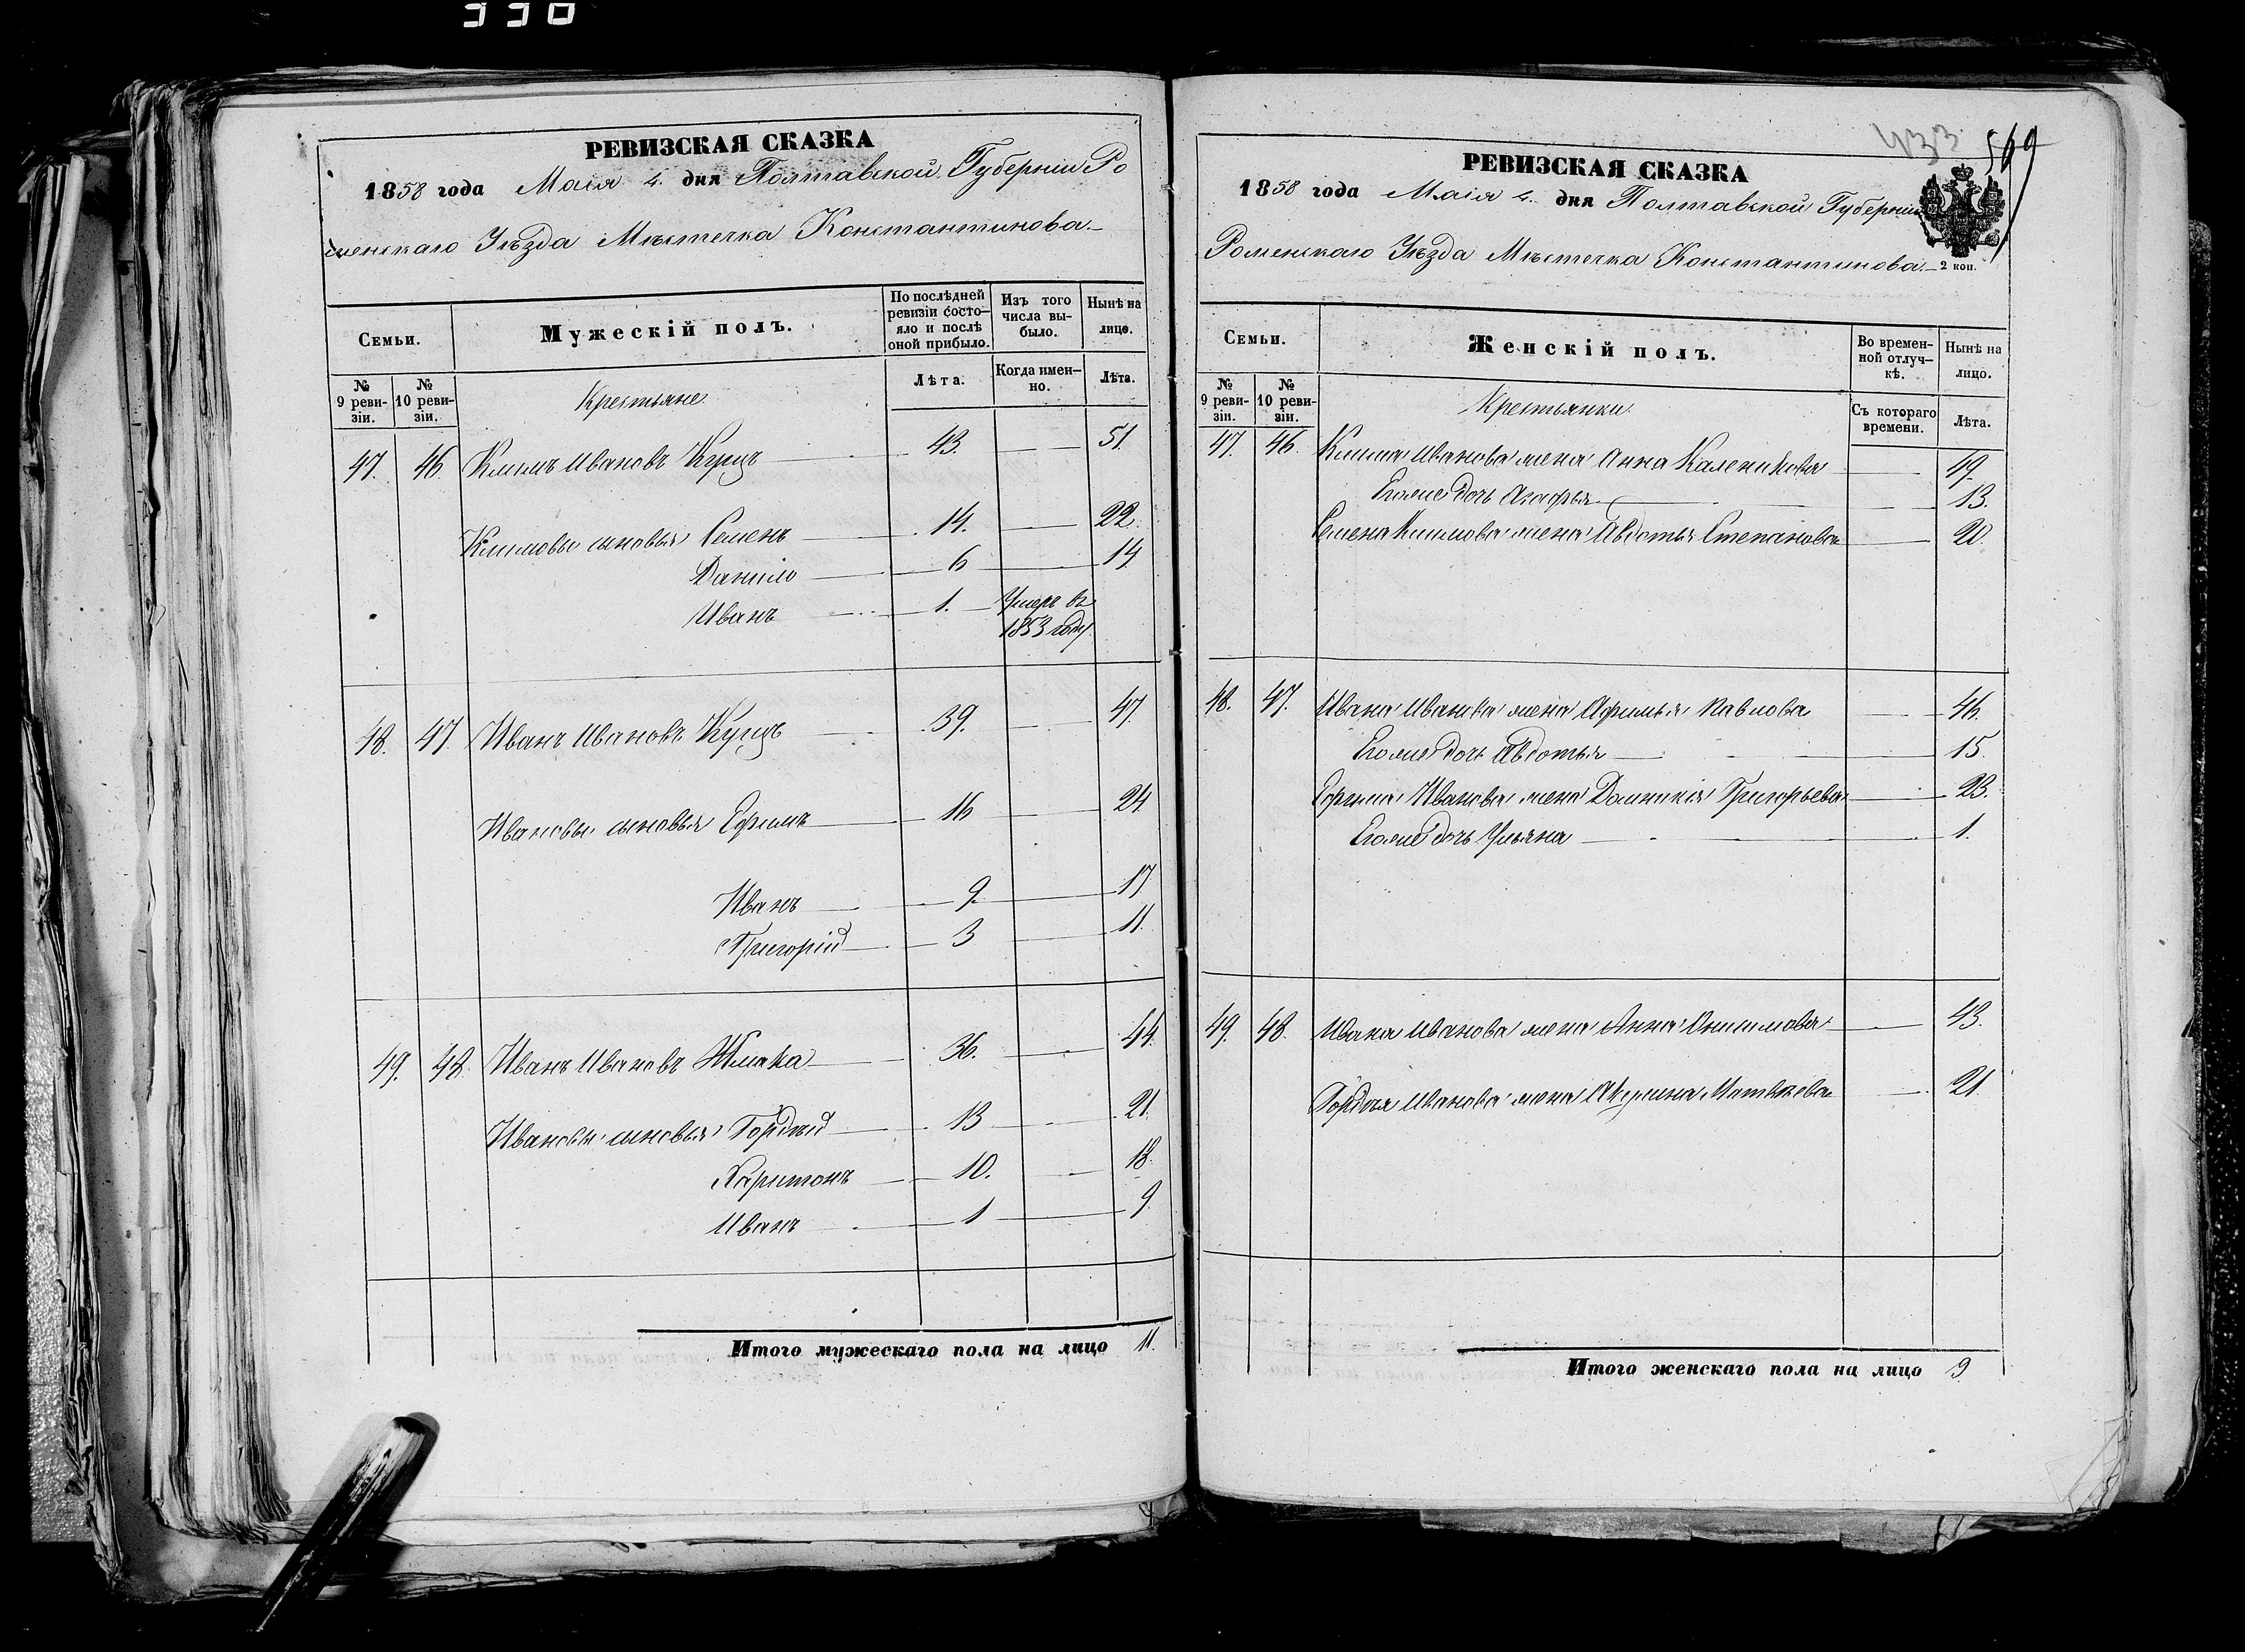 330
РЕВИЗСКАЯ СКАЗКА
1858 года Маія 4. дня Полтавской Губерніи Ро
менскаго Уѣзда Мѣстечка Константинова.
Семьи.
Мужескій полъ.
По послѣдней ревизіи состо-
яло и послѣ оной прибыло.
Изъ того числа вы-
было.
Нынѣ на лицо.
№ 9 реви-
зіи.
№ 10 реви-
зіи.
Крестьяне.
Лѣта.
Когда имен-
но.
Лѣта.
47. 46. Климъ Ивановъ Куцъ 43. 51.
Климовы сыновья Семенъ 14. 22.
Данило 6 14
Иванъ 1. Умеръ въ
1853 году
48. 47. Иванъ Ивановъ Куцъ 39. 47.
Ивановы сыновья Ефимъ 16 24
Иванъ 9. 17
Григорій 3 11.
49. 48. Иванъ Ивановъ 36. 44.
Ивановы сыновья Гордѣй 13 21.
Харитонъ 10. 18.
Иванъ 1 9.
Итого мужескаго пола на лицо 11.
433 569
РЕВИЗСКАЯ СКАЗКА
1858 года Маія 4. дня Полтавской Губерніи
Роменскаго Уѣзда Мѣстечка Константинова.
2 коп.
Семьи.
Женскій полъ.
Во времен-
ной отлуч-
кѣ.
Нынѣ на лицо.
№ 9 реви-
зіи.
№ 10 реви-
зіи.
Крестьянки.
Съ котораго времени.
Лѣта.
47. 46. Клима Иванова жена Анна Каленикова 49.
Егоже дочь Агафья 13.
Семена Климова жена Авдотья Степанова 20
48. 47. Ивана Иванова жена Афимья Павлова 46.
Егоже дочь Авдотья 15.
Ефима Иванова жена Домникія Григорьева 23.
Егоже дочь Ульяна 1.
49. 48. Ивана Иванова жена Анна Онисимова 43.
Гордѣя Иванова жена Акулина Матвѣева 21
Итого женскаго пола на лицо 9.